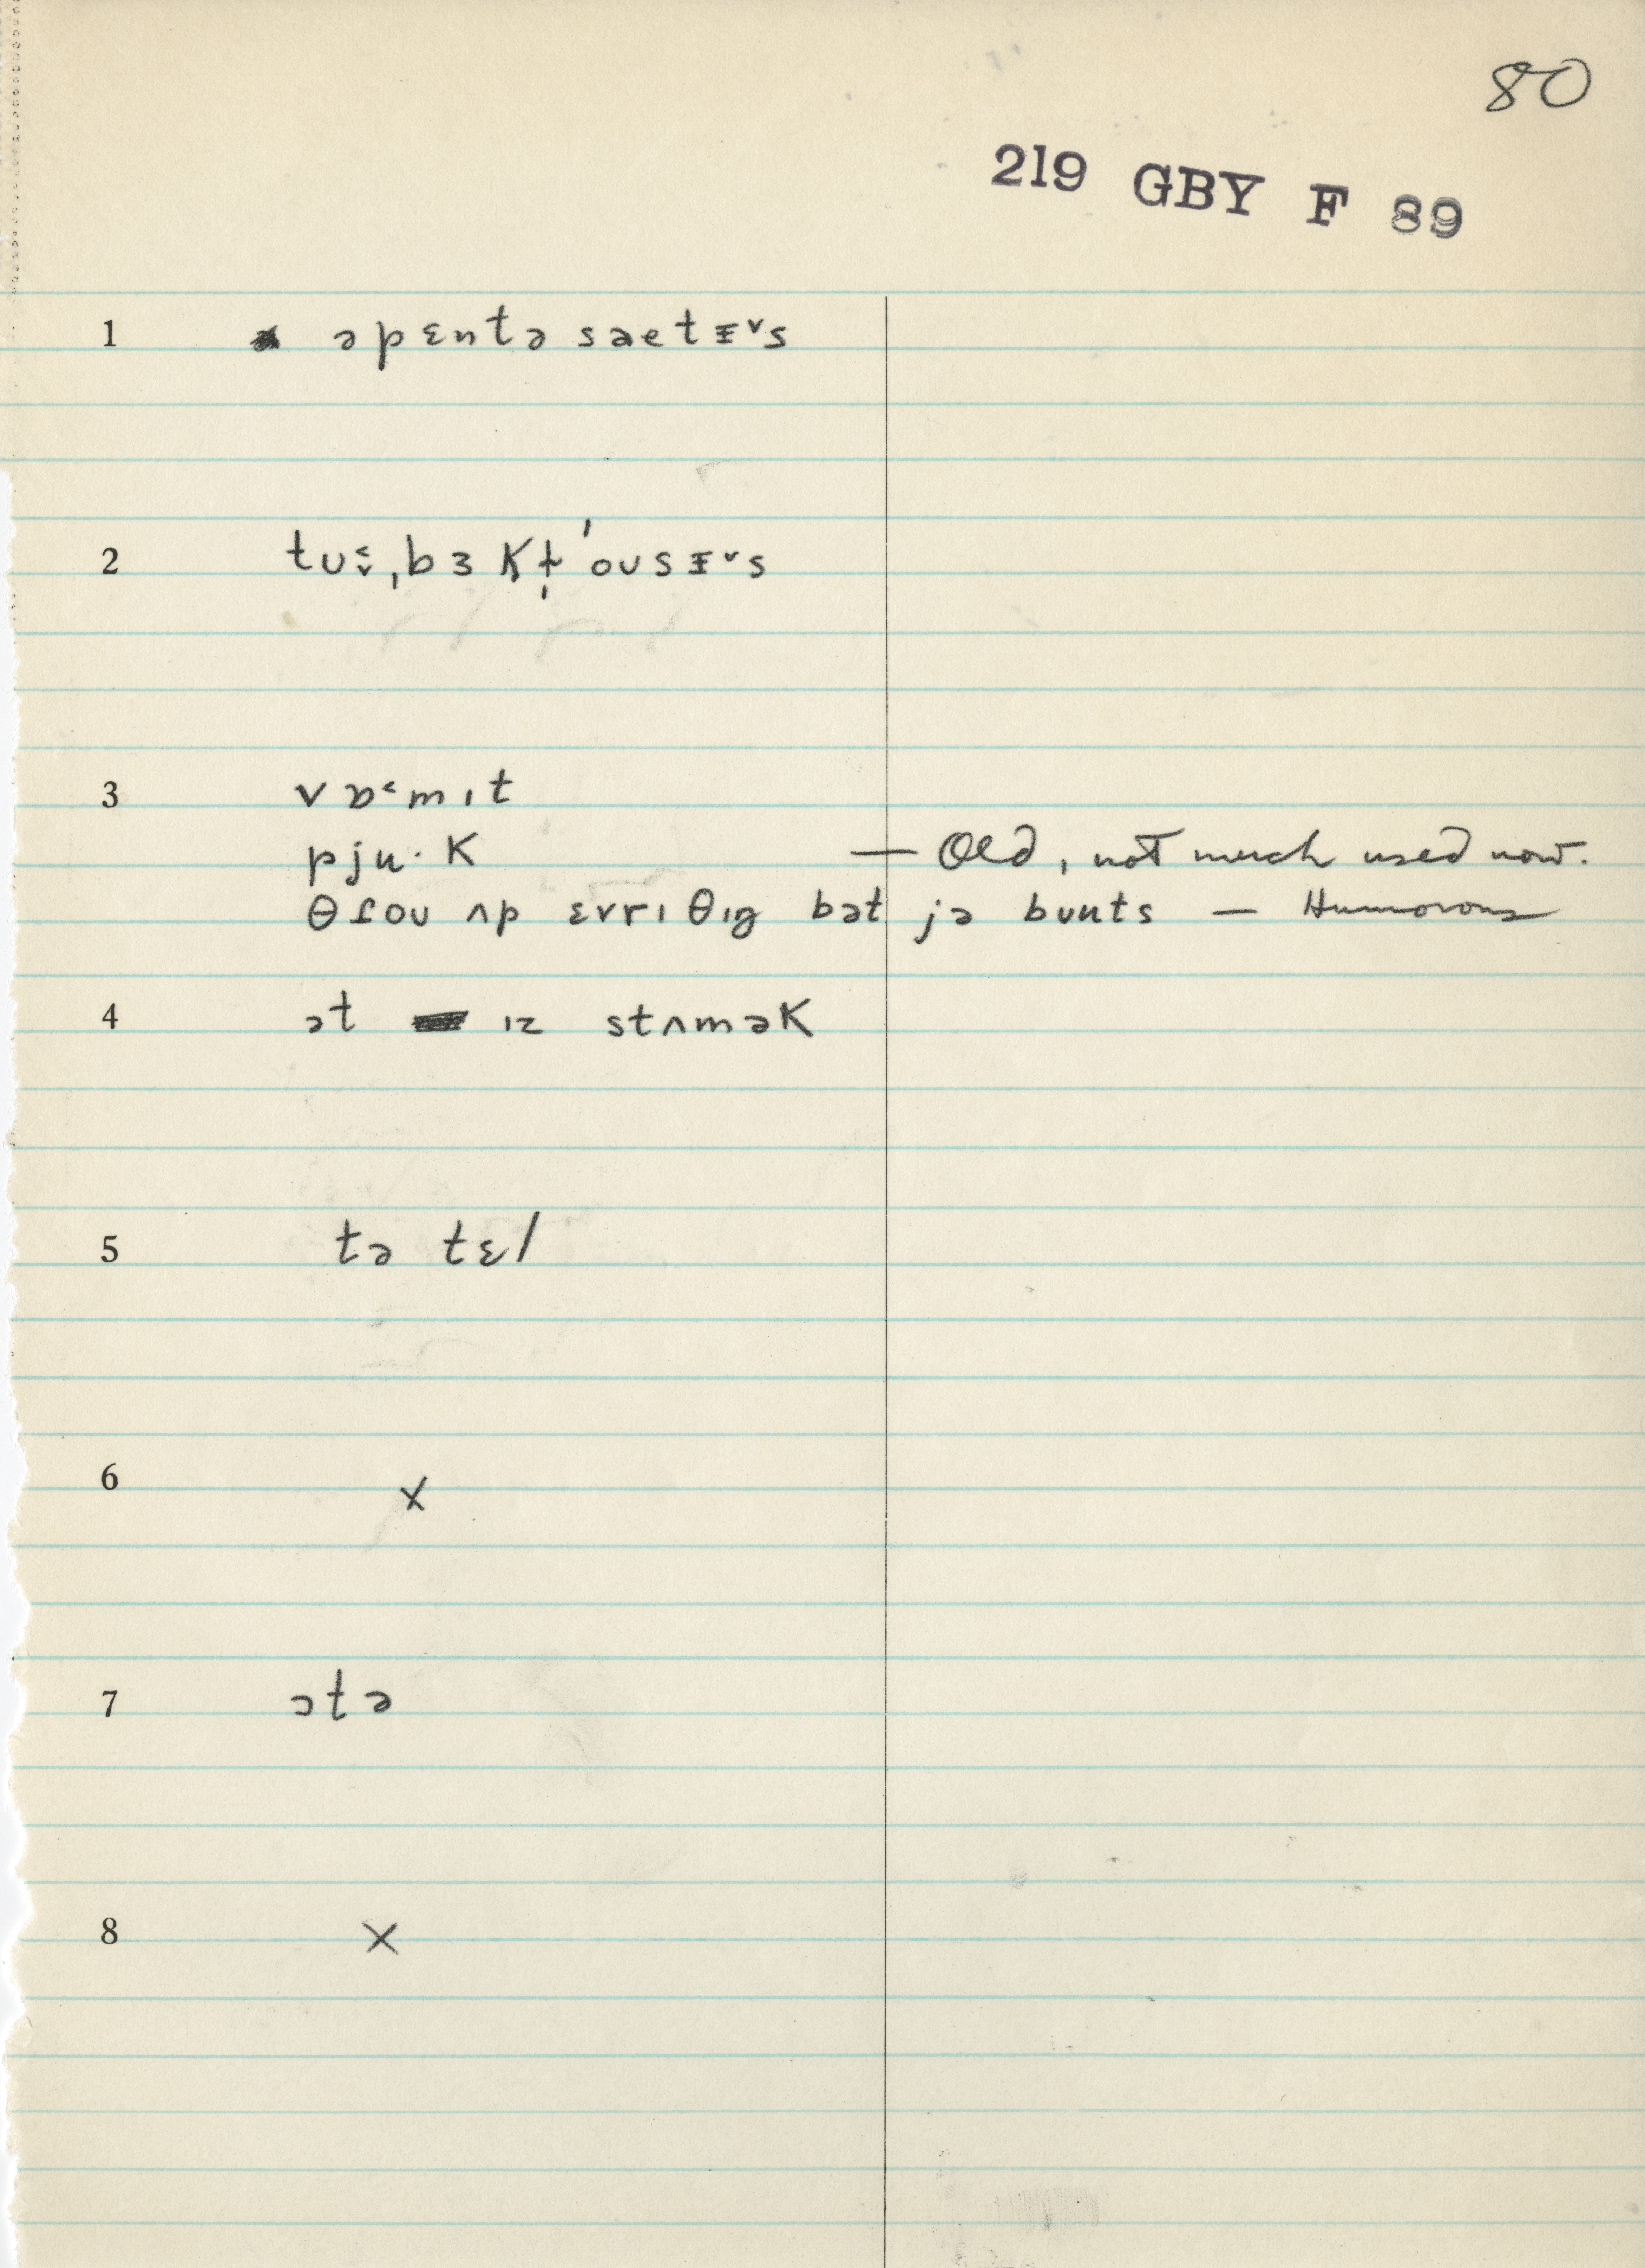 80
219 GBY F 89
1 əpɛntə saetɪ˅s
2 tʊ꞉ˌbɜkl̩ˈoʊsɪ˅s
3 vɒ˂mɪt
pju·k — Old, not much used now.
θɾoʊ ʌp ɛvrɪθɪŋ bət jə buuts — Humorous
4 ət ɪz stʌmək
5 tə tɛl
6 x
7 ɔtə
8 x